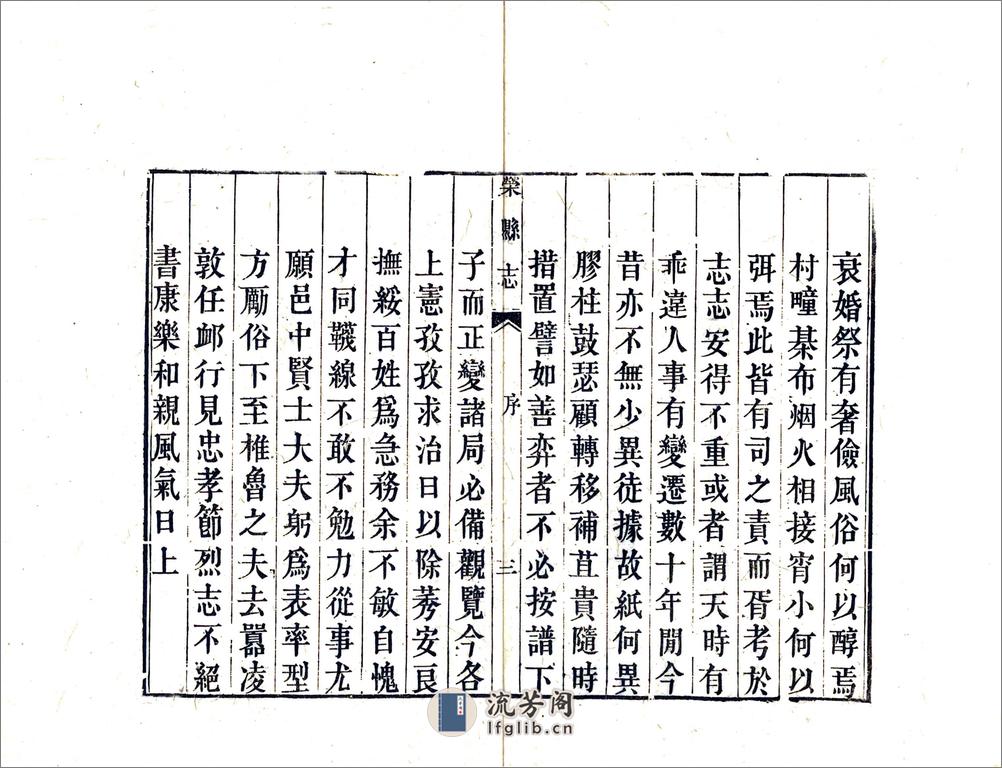 衰婚祭有奢儉風俗何以醇焉
村疃棊布烟火相接宵小何以
弭焉此皆有司之責而胥考於
志志安得不重或者謂天時有
乖違人事有變遷數十年閒今
昔亦不無少異徒據故紙何異
膠柱鼓瑟顧轉移補苴貴隨時
措置譬如善弈者不必按譜下
榮縣志
序
三
子而正變諸局必備觀覽今各
上憲孜孜求治日以除莠安良
撫綏百姓爲急務余不敏自愧
才同韈線不敢不勉力從事尤
願邑中賢士大夫躬爲表率型
方勵俗下至椎魯之夫去囂凌
敦任䘏行見忠孝節烈志不絕
書康樂和親風氣日上
流芳阁
lfglib.cn